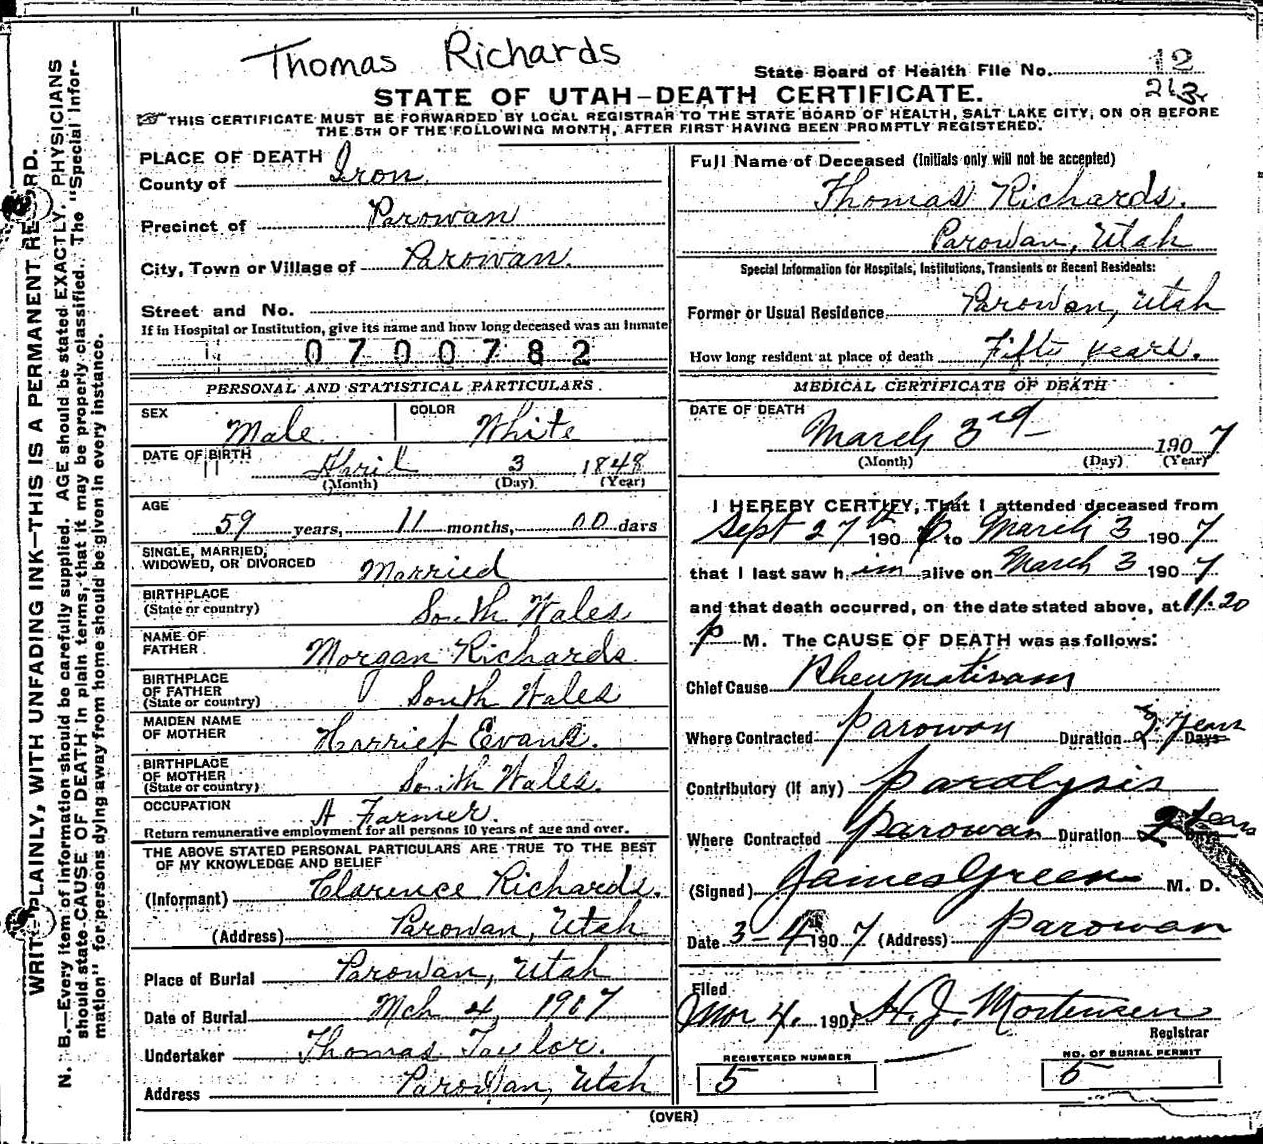 Thomas Richards
State Board of Health File No. 12
213
STATE OF UTAH—DEATH CERTIFICATE.
THIS CERTIFICATE MUST BE FORWARDED BY LOCAL REGISTRAR TO THE STATE BOARD OF HEALTH, SALT LAKE CITY, ON OR BEFORE
THE 5TH OF THE FOLLOWING MONTH, AFTER FIRST HAVING BEEN PROMPTLY REGISTERED.
WRITE PLAINLY, WITH UNFADING INK—THIS IS A PERMANENT RECORD.
N. B.—Every item of information should be carefully supplied. AGE should be stated EXACTLY. PHYSICIANS
should state CAUSE OF DEATH in plain terms, that it may be properly classified. The "Special Infor-
mation" for persons dying away from home should be given in every instance.
PLACE OF DEATH
County of Iron
Precinct of Parowan
City, Town or Village of Parowan.
Street and No.
If in Hospital or Institution, give its name and how long deceased was an inmate
0700782
PERSONAL AND STATISTICAL PARTICULARS.
SEX Male COLOR White
DATE OF BIRTH April 3 1848
(Month) (Day) (Year)
AGE
59 years, 11 months, 00 days
SINGLE, MARRIED,
WIDOWED, OR DIVORCED Married
BIRTHPLACE
(State or country) South Wales
NAME OF
FATHER Morgan Richards
BIRTHPLACE
OF FATHER
(State or country) South Wales
MAIDEN NAME
OF MOTHER Harriet Evans.
BIRTHPLACE
OF MOTHER
(State or country) South Wales.
OCCUPATION A Farmer.
Return remunerative employment for all persons 10 years of age and over.
THE ABOVE STATED PERSONAL PARTICULARS ARE TRUE TO THE BEST
OF MY KNOWLEDGE AND BELIEF
(Informant) Clarence Richards.
(Address) Parowan, Utah
Place of Burial Parowan, Utah
Date of Burial Mch 4 1907
Undertaker Thomas Taylor.
Address Parowan, Utah
Full Name of Deceased (Initials only will not be accepted)
Thomas Richards.
Parowan, Utah
Special Information for Hospitals, Institutions, Transients or Recent Residents:
Former or Usual Residence Parowan, Utah
How long resident at place of death Fifty years.
MEDICAL CERTIFICATE OF DEATH
DATE OF DEATH
March 3rd 1907
(Month) (Day) (Year)
I HEREBY CERTIFY, That I attended deceased from
Sept 27th 190 to March 3 1907
that I last saw him alive on March 3 1907
and that death occurred, on the date stated above, at 11:20
p M. The CAUSE OF DEATH was as follows:
Chief Cause Rheumatism
Where Contracted Parowan Duration 2 years Days
Contributory (if any) paralysis
Where Contracted Parowan Duration 2 Years Days
(Signed) James Green M. D.
Date 3-4 1907 (Address) Parowan
Filed
Mar 4. 1907 H. J. Mortensen
Registrar
REGISTERED NUMBER
5
NO. OF BURIAL PERMIT
5
(OVER)